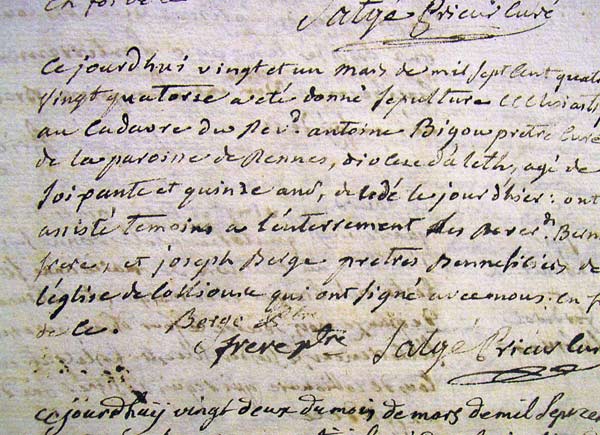 en foi de ce
Salgé Prieur Curé
Ce jourdhui vingt et un mars de mil sept cent quatre
vingt quatorse a eté donné sepulture Ecclesiasti
au Cadavre du Revd. antoine Bigou pretre Curé
de la paroisse de Rennes, diocese d'aleth, agé de
soixante et quinze ans, decedé le jour dhier: ont
assisté temoins a l'enterrement les Reverds. Bern
frere, et joseph Berge pretres Benneficiers de
l'église de Collioure qui ont signé avec nous en f
de ce. Berge ptre
frere ptre Salgé Prieur Cur
ce jourdhuy vingt deux du mois de mars de mil sept ce